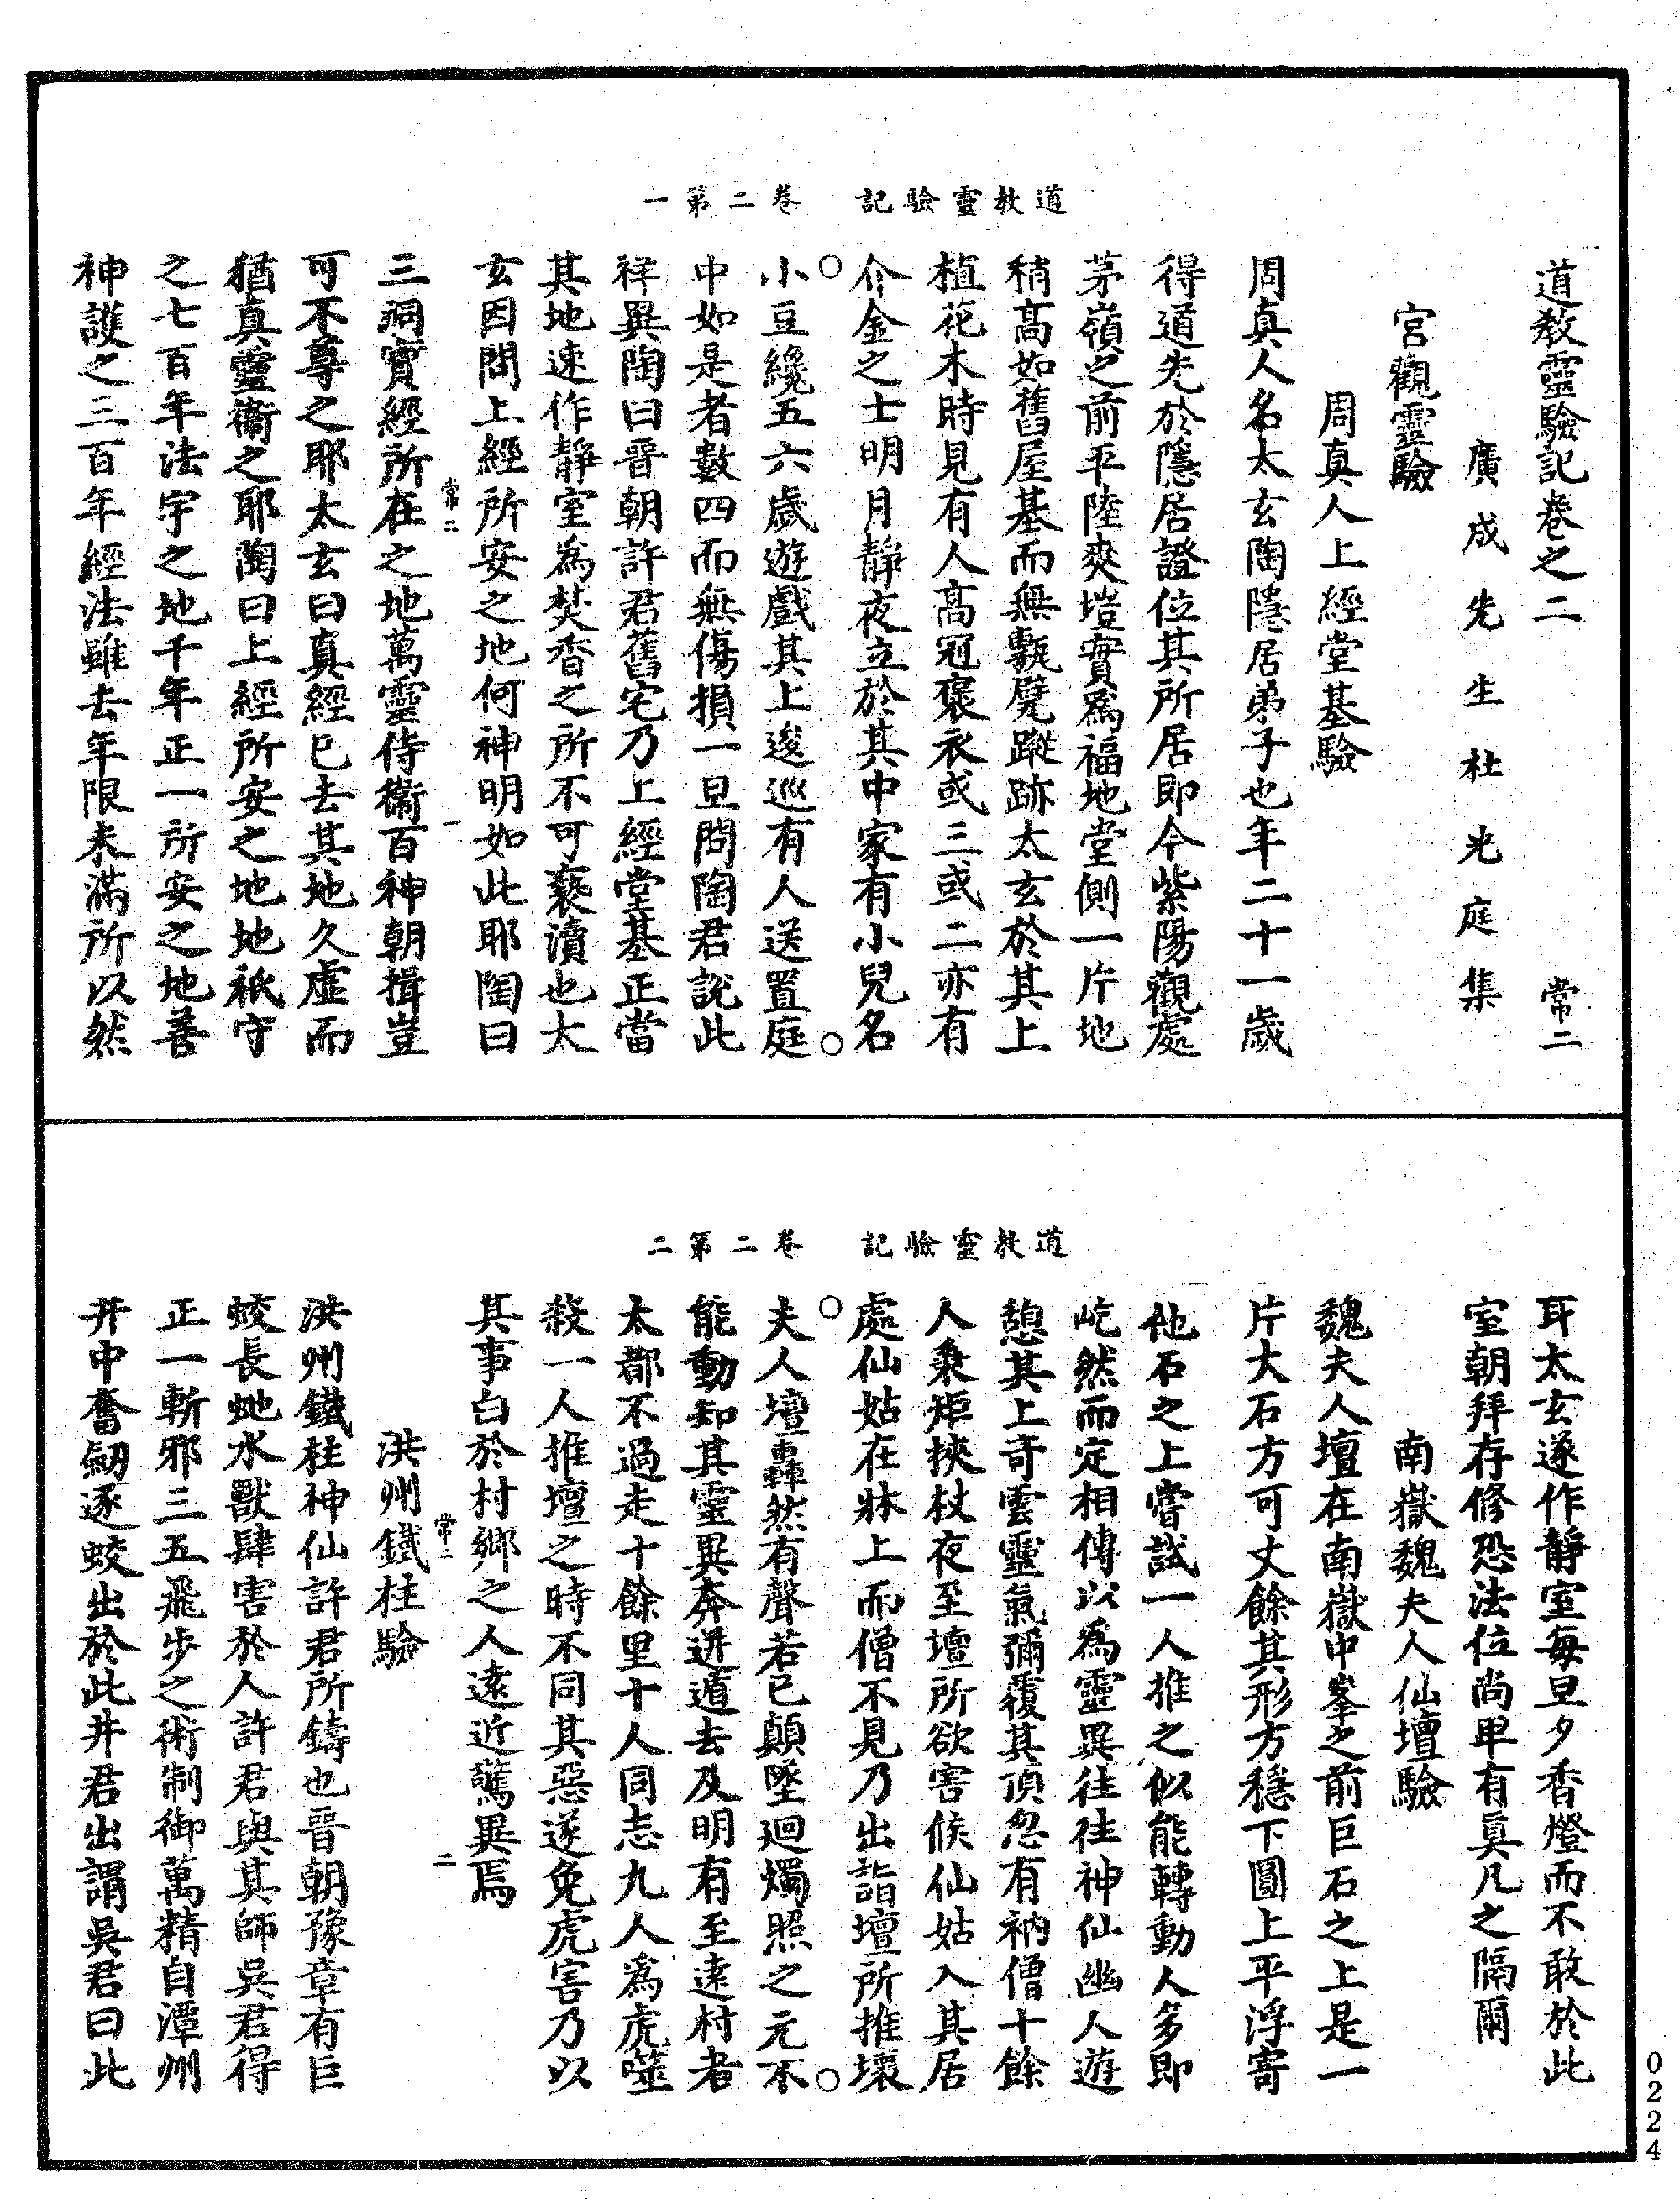 道教靈驗記卷二第一
道教靈驗記卷之二　常二
廣成先生杜光庭集
宮觀靈驗
周真人上經堂基驗
周真人名太玄陶隱居弟子也年二十一歲
得道先於隱居證位其所居即今紫陽觀處
茅嶺之前平陸爽塏實爲福地堂側一片地
稍高如舊屋基而無甎甓蹤跡太玄於其上
植花木時見有人高冠褒衣或三或二亦有
介金之士明月靜夜立於其中家有小兒名
小豆纔五六歲遊戲其上逡巡有人送置庭
中如是者數四而無傷損一旦問陶君說此
祥異陶曰晉朝許君舊宅乃上經堂基正當
其地速作靜室爲焚香之所不可褻瀆也太
玄因問上經所安之地何神明如此耶陶曰
常二　一
三洞寶經所在之地萬靈侍衞百神朝揖豈
可不尊之耶太玄曰真經已去其地久虛而
猶真靈衞之耶陶曰上經所安之地地祇守
之七百年法宇之地千年正一所安之地善
神護之三百年經法雖去年限未滿所以然
道教靈驗記卷二第二
耳太玄遂作靜室每旦夕香燈而不敢於此
室朝拜存修恐法位尚卑有真凡之隔爾
南嶽魏夫人仙壇驗
魏夫人壇在南嶽中峯之前巨石之上是一
片大石方可丈餘其形方穩下圓上平浮寄
他石之上嘗試一人推之似能轉動人多即
屹然而定相傳以爲靈異往往神仙幽人遊
憩其上奇雲靈氣彌覆其頂忽有衲僧十餘
人秉炬挾杖夜至壇所欲害緱仙姑入其居
處仙姑在牀上而僧不見乃出詣壇所推壞
夫人壇轟然有聲若已顛墜迴燭照之元不
能動知其靈異奔迸遁去及明有至遠村者
太都不過走十餘里十人同志九人爲虎噬
殺一人推壇之時不同其惡遂免虎害乃以
其事白於村鄉之人遠近驚異焉
常二　二
洪州鐵柱驗
洪州鐵柱神仙許君所鑄也晉朝豫章有巨
蛟長虵水獸肆害於人許君與其師吳君得
正一斬邪三五飛步之術制御萬精自潭州
井中奮劒逐蛟出於此井君出謂吳君曰此
0224